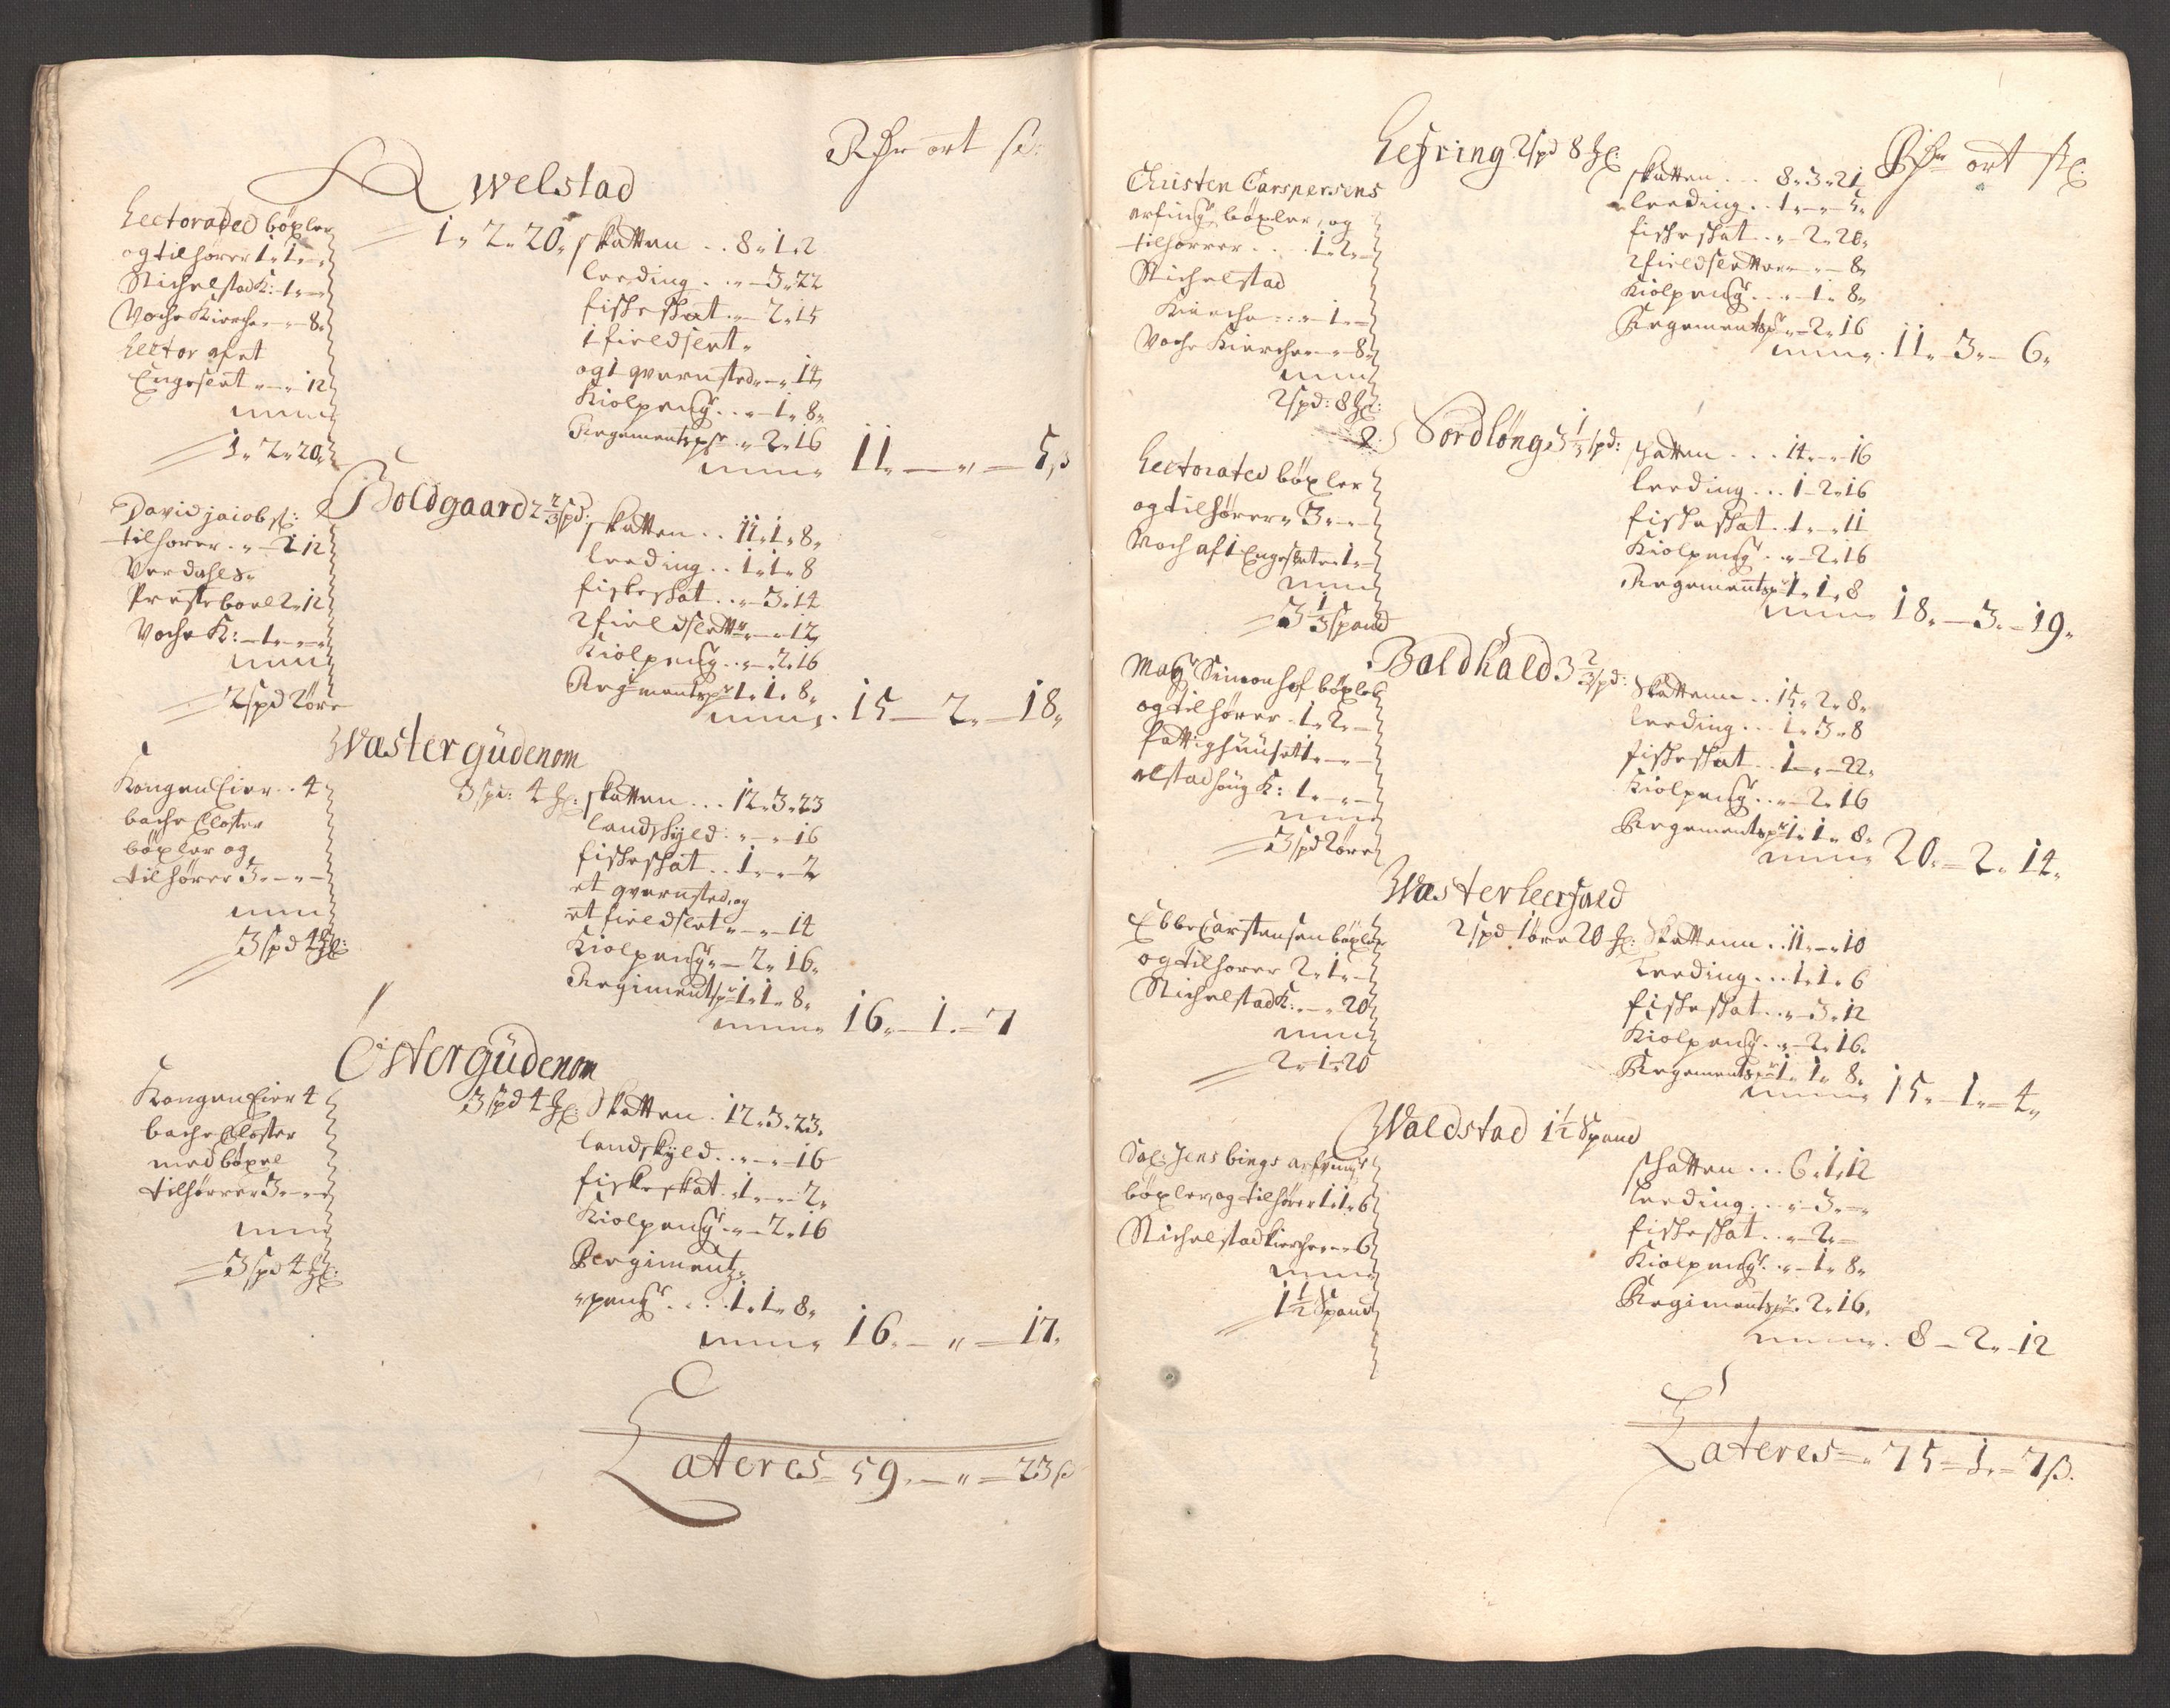 Rdr ort s:
Awelstad
Lectorated böxler
og tilhører 1 „ 1 „ - „
Stichelstad K: - 1 „ - „
Voche Kirche „ - „ 8 „
Lector af et
Engeslet „ - „ 12
1 „ 2 „ 20 „
1 „ 2 „ 20 „ skatten . . 8 „ 1 „ 2
leeding . . „ - 3 „ 22
fiskeskat . „ - 2 „ 15
1 fieldslet „
og 1 qvernsted „ - „ 14
Kiolpeng . . „ - 1 „ 8 „
Regementsp „ - 2 „ 16
11 „ - „ - 5 s
Boldgaard 2 2/3 spd:
David jaiobs:
tilhører . „ - 2 12
Verdahls„
Presteboel 2 „ 12
Voche K: - 1 „ - „
2 spd 2 öre
skatten . . 11 „ 1 „ 8 „
leeding . . 1 „ 1 „ 8
fiskeskat . . „ - 3 „ 14
2 fieldslette „ - „ 12
Kiolpeng . . „ - 2 „ 16
Regimentsp 1 „ 1 „ 8 „
15 - 2 „ - 18 „
Wæster güdenom
Kongen Eier . . 4
bache Closter
böxler og
tilhører 3 „ - „ -
3 spd 4
3 spd: 4 : skatten . . . 12 „ 3 „ 23
landskyld . „ - „ 16
fiskeskat . . 1 „ - „ 2
et qvernsted, og
et fieldslet „ - „ 14
Kiolpeng „ - 2 „ 16 „
Regimentsp 1 „ 1 „ 8 „
16 „ - 1 . - 7
Öster güdenom
Kongen Eier 4
bache Closter
med böxel
tilhører 3 „ - „
3 spd 4
3 spd 4 : Skatten . 12 „ 3 „ 23 „
landskyld . . „ - „ 16
fiskeskat . 1 „ - „ 2 „
Kiolpeng . „ - 2 „ 16
Regiments„
„peng . . . 1 „ 1 „ 8 „
16 „ - „ - 17 „
Lateres - 59 „ - „ - 23 s
Rdr ort s:
Lefring 2 spd 8
Christen Carspersens
arfing böxler, og
tilhører . . . 1 „ 2 „ -
Stichelstad
Kirche . . „ - 1 „ -
Voche Kirche „ - 8 „
2 spd: 8
skatten . . . 8 „ 3 „ 21
leeding . . 1 „ - „ 5 „
fiskeskat . „ - 2 „ 20 „
2 fieldslette „ - „ 8 „
Kiolpeng . . „ - 1 „ 8 „
Regementsp „ - 2 „ 16
11 „ - 3 „ - 6 „
Nordlöng 3 1/3 spd:
Lectorated böxler
og tilhører „ 3 „ - „ -
Voch af 1 Engeslette „ 1 „ -
3 1/3 spand
skatten . . . 14 „ - „ 16
leeding . . . 1 - 2 „ 16
fiskeskat . . 1 „ - „ 11
Kiolpeng . „ - 2 „ 16
Regementsp 1 „ 1 „ 8
18 „ - 3 „ - 19 „
Baldhald 3 2/3 spd:
Mag Simon Hof böxler
og tilhører - 1 „ 2 „ -
fattighüüset 1 „ - „ -
elstadhöüg K: 1 „ - „ -
3 spd 2 öre
Skattenn . . 15 „ 2 „ 8 „
leeding . . . 1 „ 3 „ 8
fiskeskat . . 1 „ - „ 22 „
Kiolpeng . . „ - 2 „ 16
Regementsp 1 „ 1 „ 8 „
20 „ - 2 „ 14 „
Wæster Leerhald
Ebbe Carstensen böxler
og tilhører 2 „ 1 „ -
Stichelstad K: . - „ 20
2 „ - 1 „ 20
2 spd 1 öre 20 : Skattenn . . 11 „ - „ 10
Leeding . . . 1 „ 1 „ 6
fiskeskat . . „ - 3 „ 12
Kiolpeng . „ - 2 „ 16 „
Regementsp 1 „ 1 „ 8 „
15 „ - 1 „ - 4 „
Waldstad 1 1/2 Spand
Sal: Jens bings arfving
böxler, og tilhører 1 „ 1 „ 6
Stichelstad kirche „ - „ 6
1 1/2 Spand
skatten . . . 6 „ 1 „ 12
Leeding . . . „ - 3 „ - „
fiskeskat . . „ - 2 „ -
Kiolpeng . . „ - 1 „ 8 „
Regimentsp „ 2 „ 16 „
8 - 2 „ - 12
Lateres - „ 75 - 1 „ - 7 s.